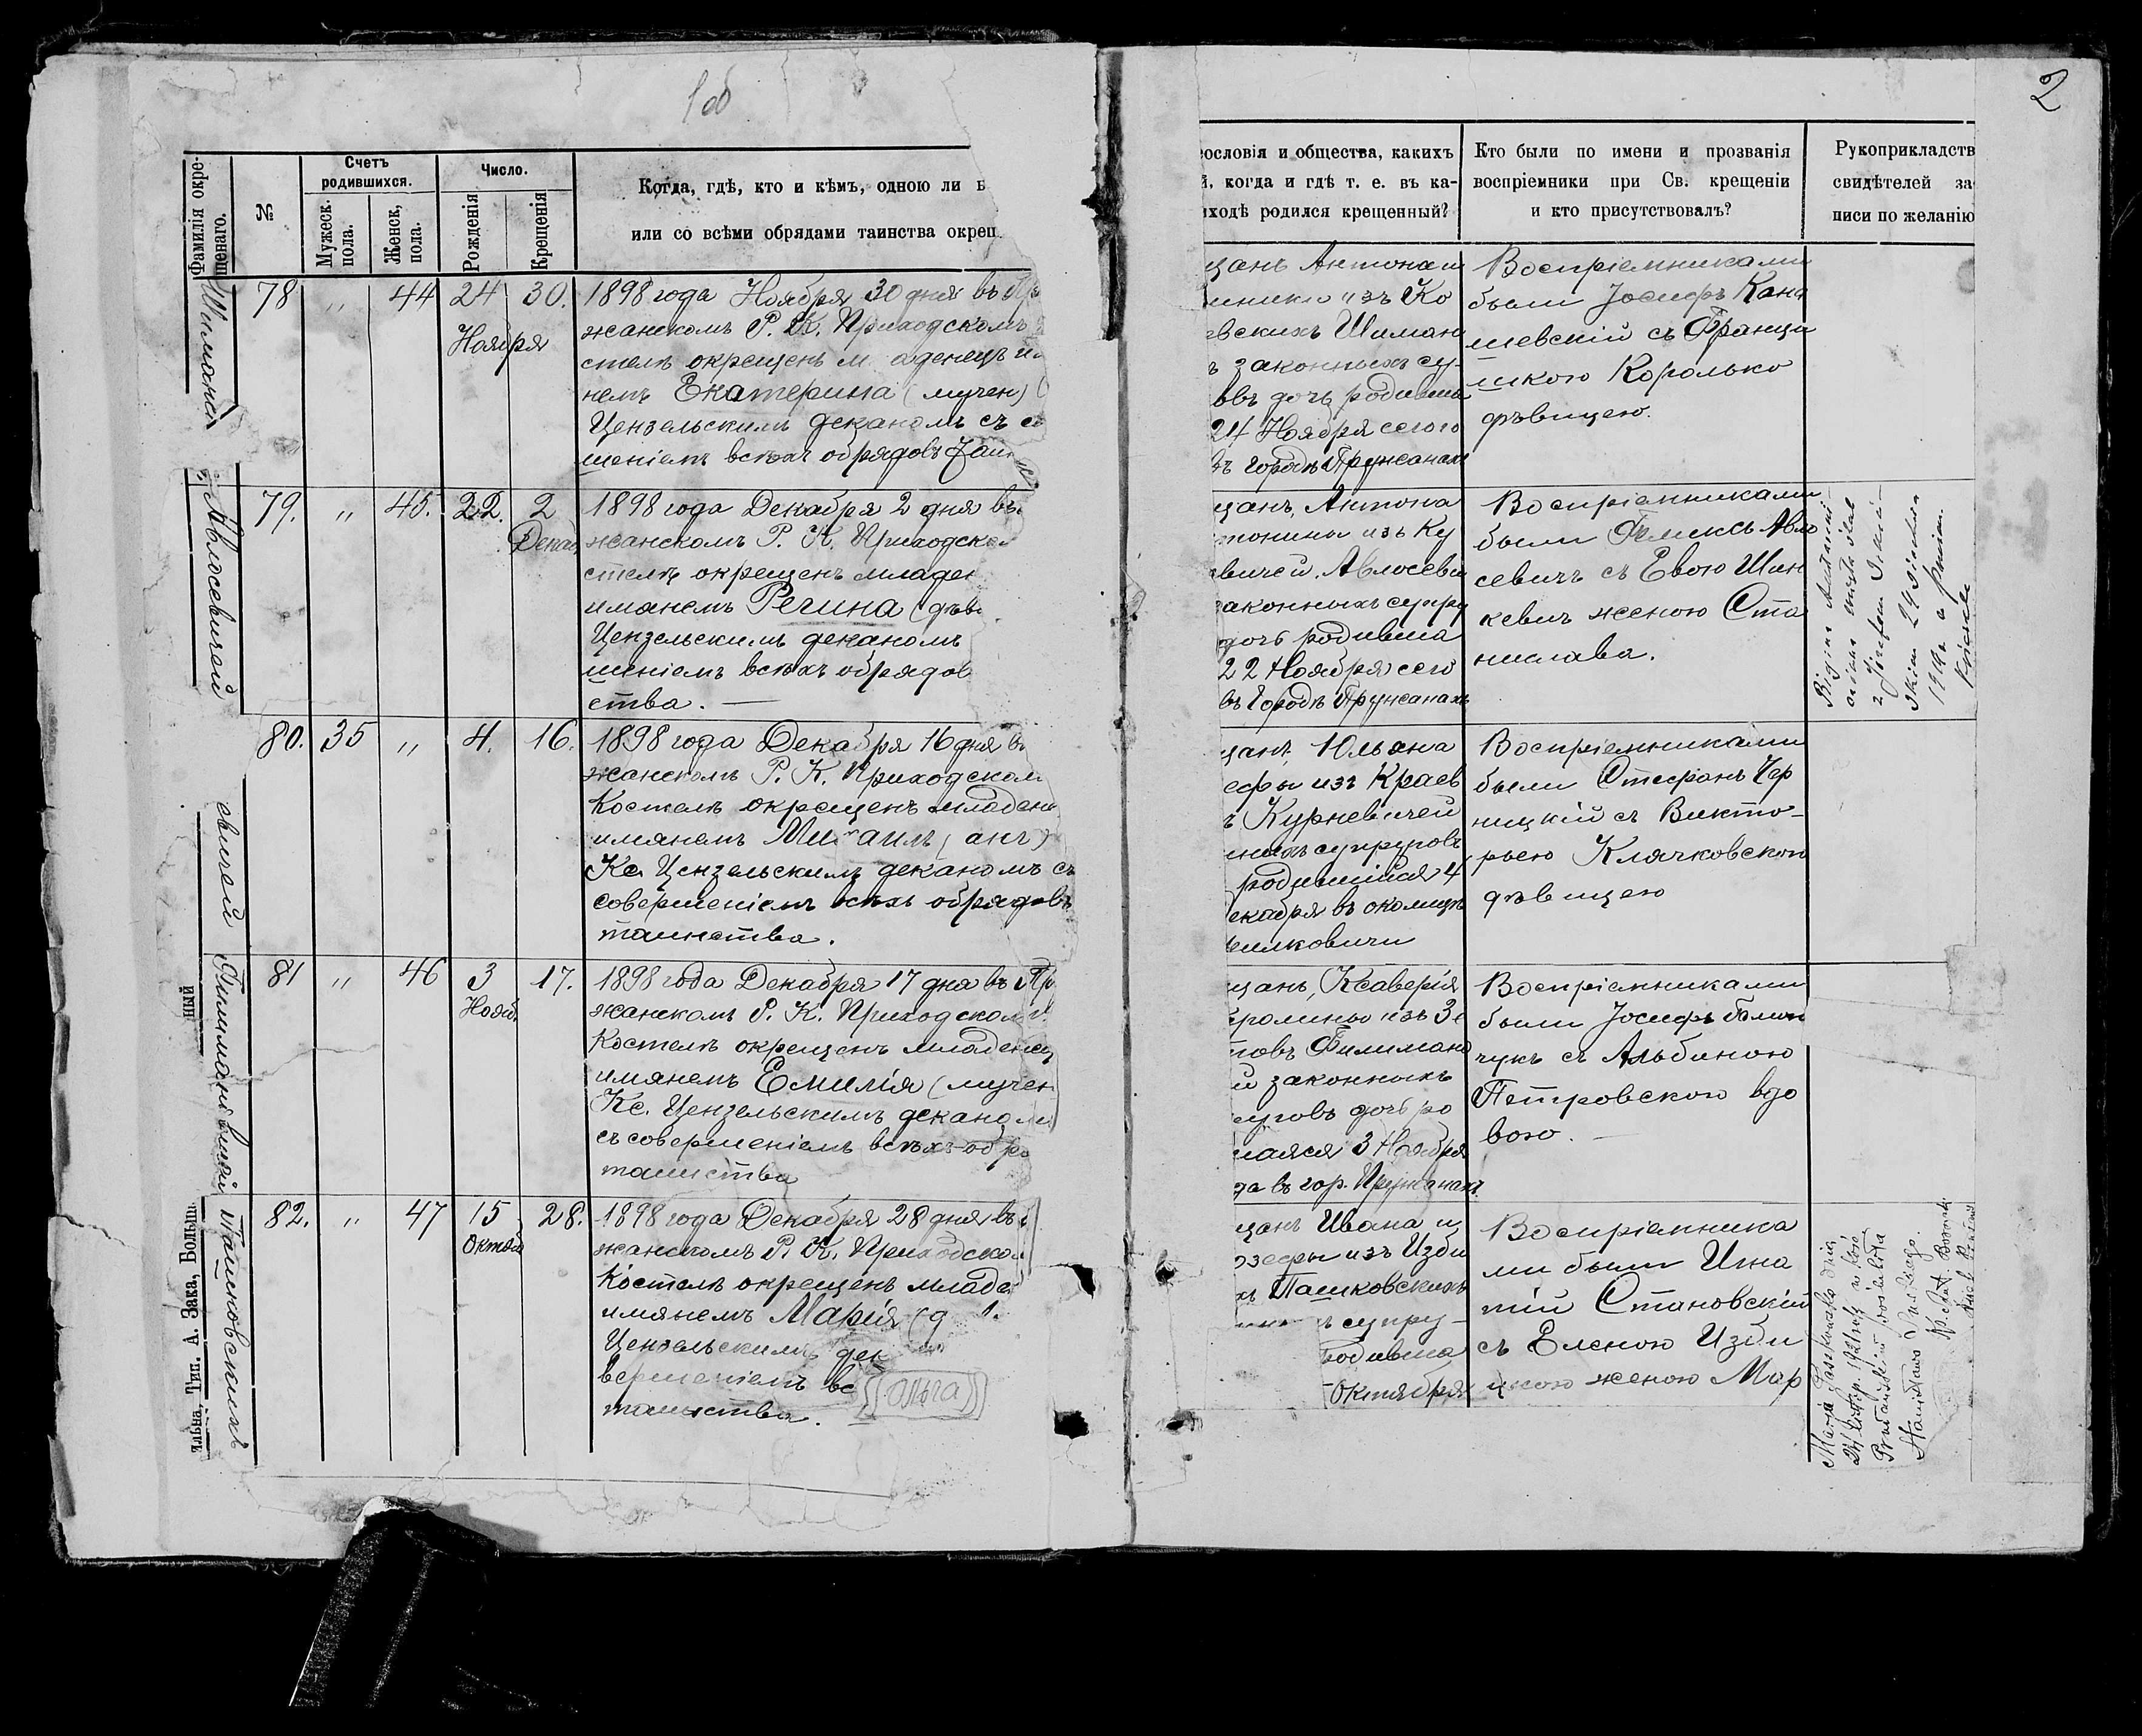 1об
2
Фамилія окре-
щенаго.
№
Счетъ
родившихся.
Мужеск.
пола.
Женск,
пола.
Число.
Рожденія
Крещенія
Когда, гдѣ, кто и кѣмъ, одною ли в
или со всѣми обрядами таинства окрещ
78 " 44 24 30.
Ноября
1898 года Ноября 30 дня въ Пр
жанскомъ Р. К. Приходскомъ
стелѣ окрещенъ м аденецъ и
немъ Екатерина (мучен) (
Цензельскимъ деканомъ съ со
шеніемъ всѣхъ обрядовъ Таин
Авлосевичей
79. " 45. 22. 2
Декаб
1898 года Декабря 2 дня въ
жанскомъ Р. К. Приходско
стелѣ окрещенъ младен
имянемъ Регина (дѣв
Цензельскимъ деканомъ
шеніемъ всѣхъ обрядов
ства. —
80. 35 " 4. 16.
1898 года Декабря 16 дня въ
жанскомъ Р. К. Приходском
Костелѣ окрещенъ младен
имянемъ Михаилъ (анг)
Кс. Цензельскимъ деканомъ съ
совершеніемъ всѣхъ обрядовъ
таинства.
евичей
81 " 46 3 17.
Нояб.
1898 года Декабря 17 дня въ Пр
жанскомъ Р. К. Приходском
Костелѣ окрещенъ младенец
имянемъ Емилія (мучен
Кс. Цензельскимъ деканом
съ совершеніемъ всѣхъ обря
таинства
ный
Ташковскихъ
82. " 47 15 28.
Октяб
1898 года Декабря 28 дня въ
жанскомъ Р. К. Приходском
Костелѣ окрещенъ младе
имянемъ Марія (д
Цензельскимъ дек
вершеніемъ вс
таинства.
(Ольга)
ильна, Тип. А. Зака, Больш.
ословія и общества, какихъ
й, когда и гдѣ т. е. въ ка-
иходѣ родился крещенный?
Кто были по имени и прозванія
воспріемники при Св. крещеніи
и кто присутствовалъ?
Рукоприкладств
свидѣтелей за
писи по желанію
щанъ Антона и
иники изъ Ко
евскихъ Шиман
ъ законныхъ су-
овъ дочь родивша
24 Ноября сего го
въ городѣ Пружанахъ
Воспріемниками
были Іосифъ Кана
шевскій съ Франци
шкою Королько
дѣвицею.
щанъ, Антона
тонины изъ Ку
вичей Авлосеви
аконныхъ супру
дочь родивша
22 Ноября сего
въ городѣ Пружанахъ
Воспріемниками
были Феликсъ Авло
севичъ съ Евою Шин
кевичъ женою Ста
нислава.
щанъ, Юльяна
ефы изъ Краев
ъ Курневичей
нныхъ супруговъ
родившійся 4
екабря въ околицѣ
Воспріемниками
были Стефанъ Чер
ницкій съ Викто-
рьею Клячковскою
дѣвицею
щанъ, Ксаверія
ролины изъ Зе
товъ Филимано
й законныхъ
уговъ дочь ро
шаяся 3 Ноября
да въ гор. Пружанахъ
Воспріемниками
были Іосифъ
чукъ съ Альбиною
Петровскою вдо
вою. —
щанъ Ивана и
озефы изъ Изби
хъ Ташковскихъ
супру-
родивша
Октября
Воспріемника
ми были Игна
тій Становскій
съ Еленою Изби
цкою женою Мар